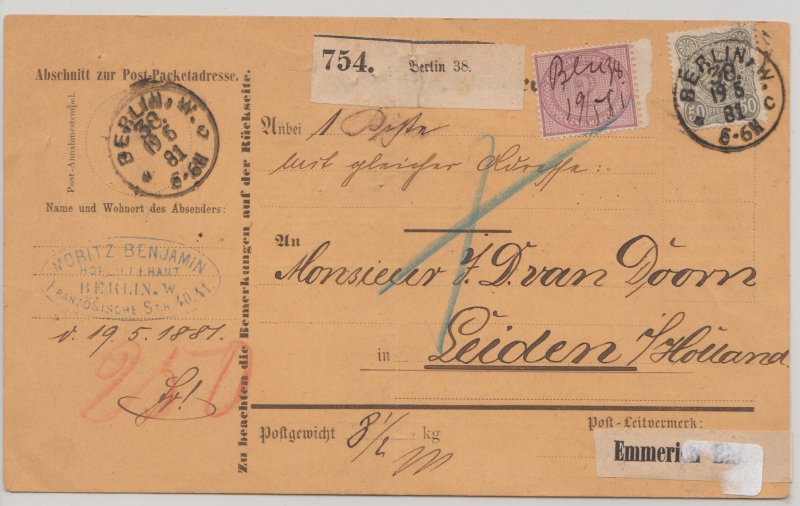 Abschnitt zur Post-Packetadresse.
Post-Annahmestempel.
BERLIN, W.
38
19 5
81
5-6N
*
c
Name und Wohnort des Absenders:
MORITZ BENJAMIN
HOFLIEFERANT
BERLIN. W.
FRANZÖSISCHE STR. 40.41.
d. 19. 5. 1881.
Zu beachten die Bemerkungen auf der Rückseite.
754. Berlin 38.
19/5 81
50 50
BERLIN, W.
38
19 5
81
5-6N
*
c
Anbei 1 Kiste
mit gleicher Adresse:
An
Monsieur J. D. van Doorn
in Leiden i/Holland.
Postgewicht 8 1/2 kg
Post-Leitvermerk: